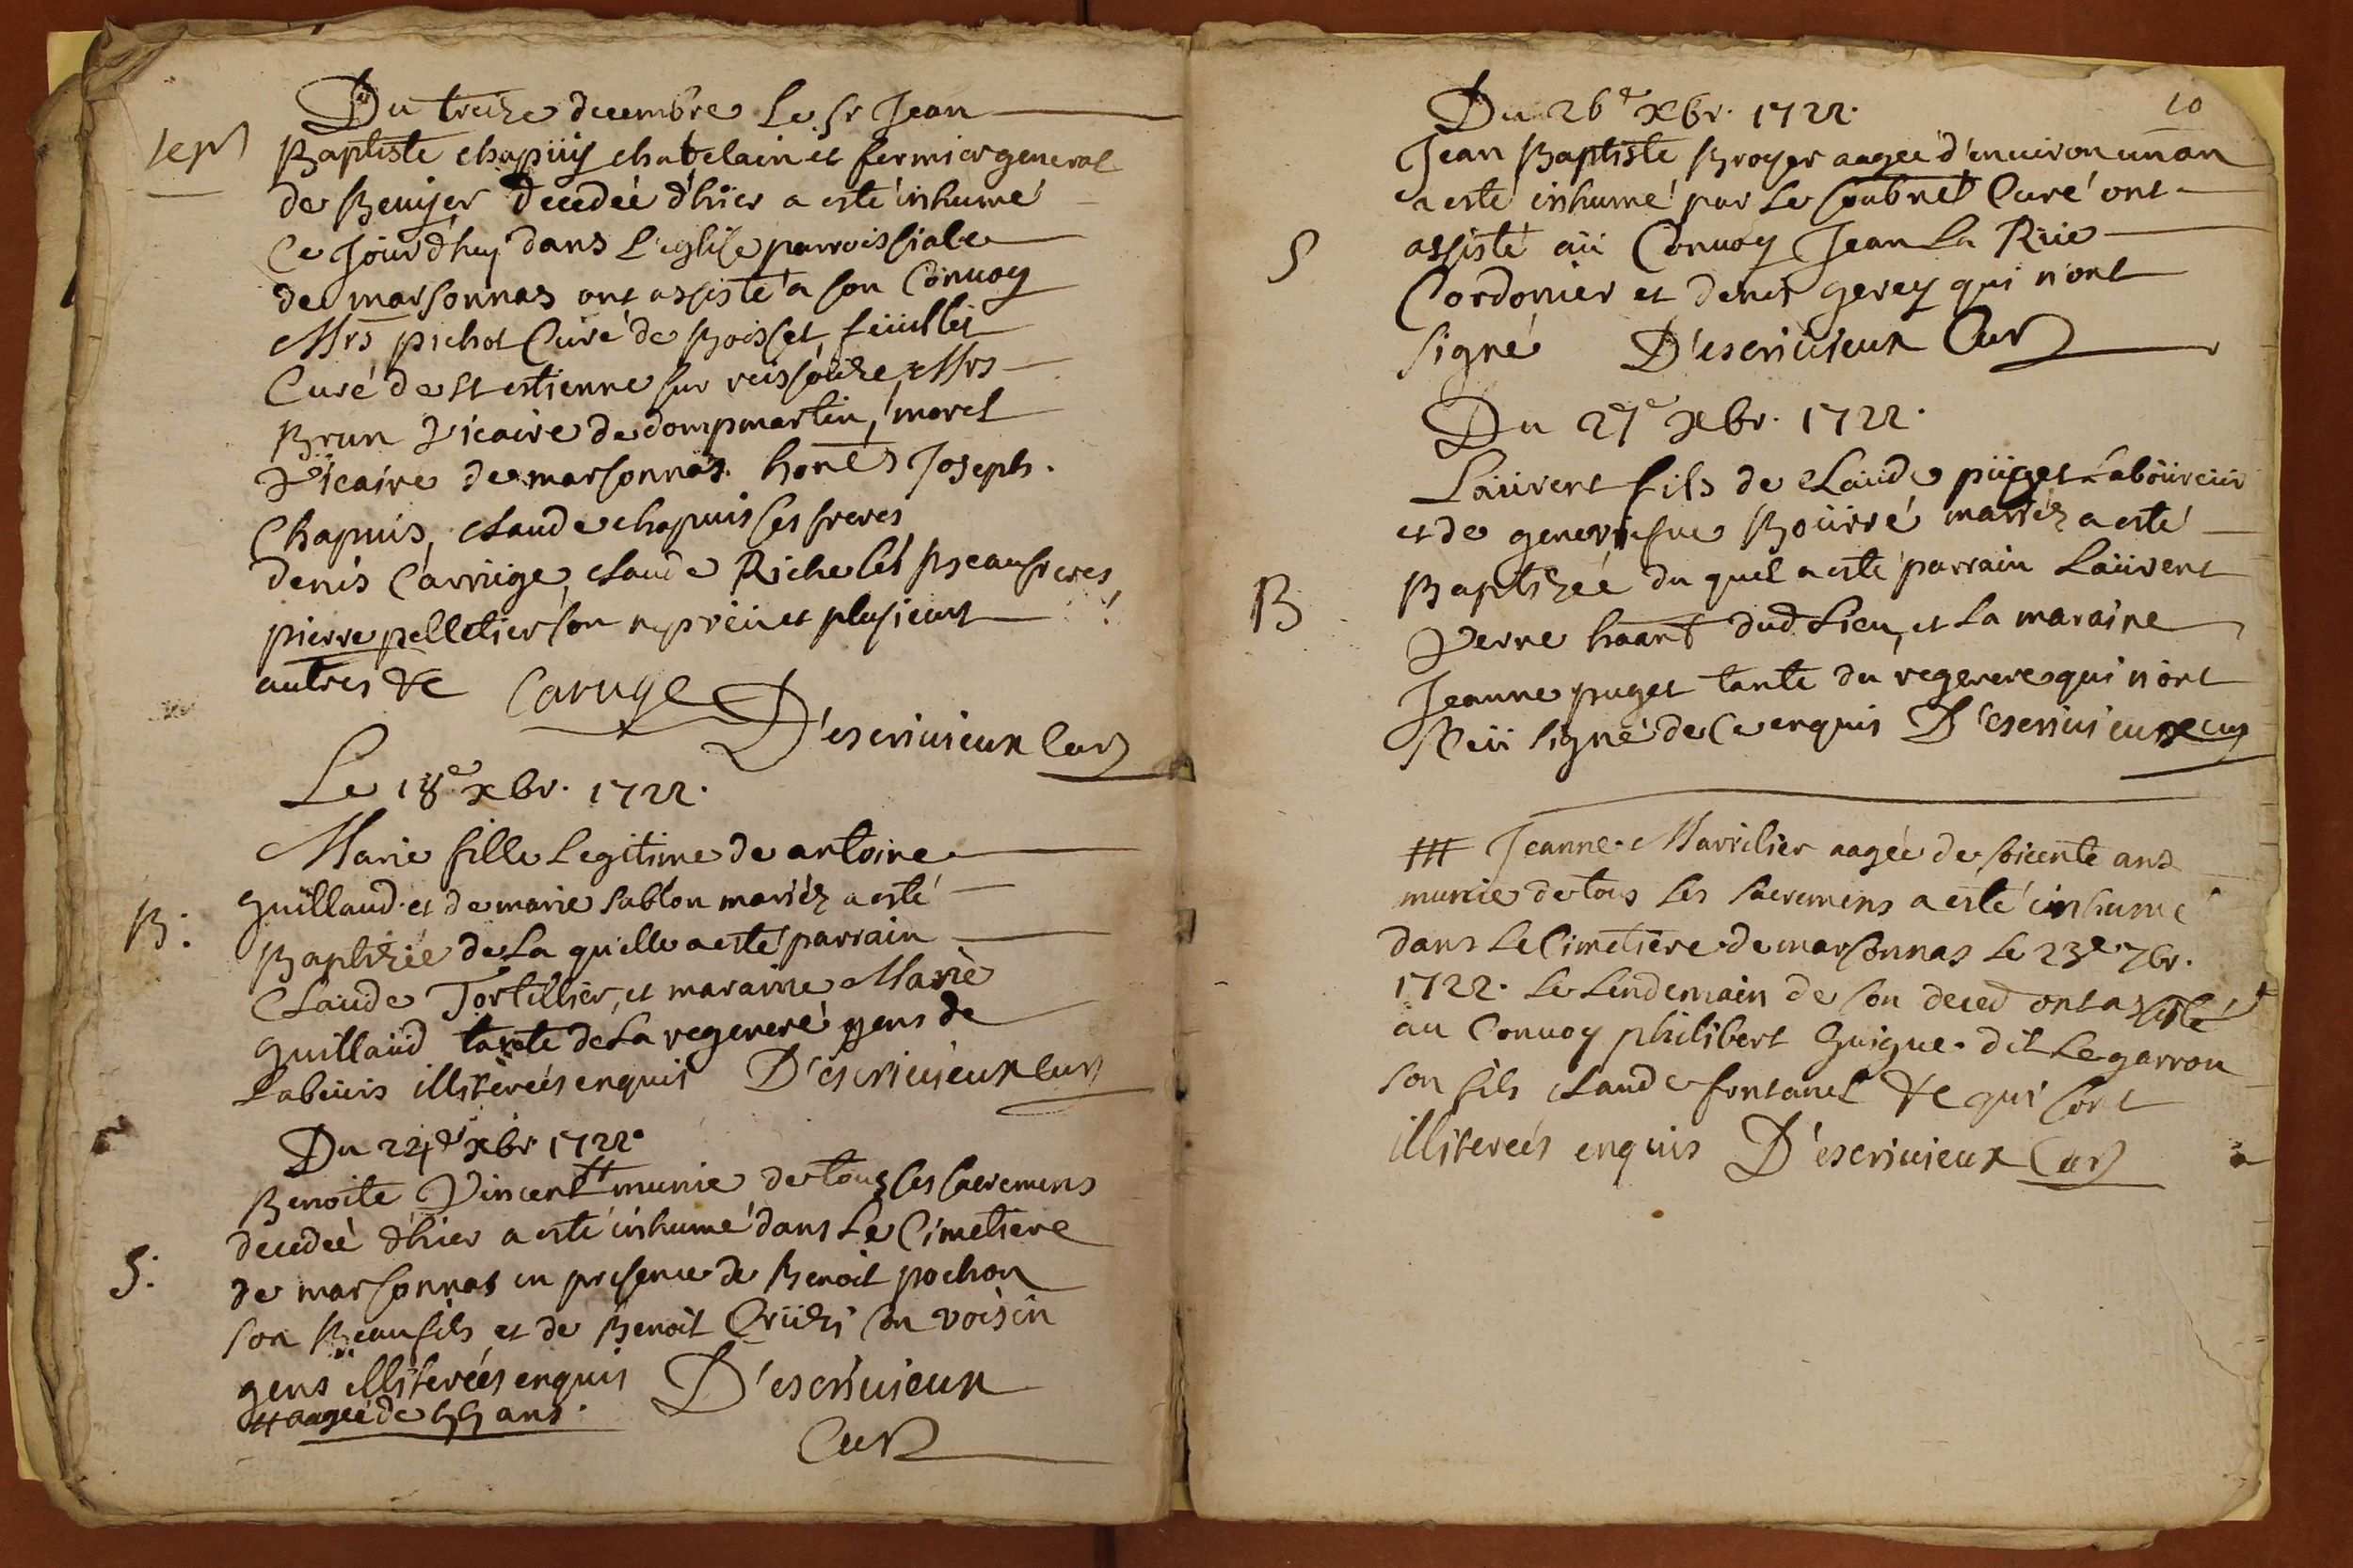 Du treize decembre Le Sr Jean
sep
Baptiste chapuÿ chatelain et fermier general
de Beuÿer decedeé d'hier a esté inhumé
Ce Jourd'huy dans L'eglise parroissiale
de marsonnas ont assisté a son Convoy
Mrs pichot Curé de Boisset, feüillet
Curé de st estienne sur reissouze, Mrs
Brun Vicaire de dompmartin, moret
Vicaire de marsonnas. honês Joseph
Chapuis, claude chapuis ses freres
denis Carruge, claude Richelet Beaufreres,
pierre pelletier son neveu et plusieurs
autres &c Caruge D'escrivieux Curé
Le 18e xbr. 1722.
Marie fille Legitime de antoine
guillaud et de marie Sablon mariéz a esté
B:
Baptizeé de La quelle a esté parrain
Claude Tortillier, et maraine Marie
guillaüd tante de La regeneré gens de
Labeurs illitereés enquis D'escrivieux Curé
Du 24e xbr 1722.
Benoite Vincent # munie de tous ses sacremens
decedeé d'hier a esté inhumé dans Le Cimetiere
S:
de marsonnas en presence de Benoit pochon
son Beaufils et de Benoit son voisin
gens illitereés enquis D'escrivieux
# aageé de 55 ans. Curé
10
Du 26e xbr. 1722.
Jean Baptiste Broyer aageé d'environ un an
a esté inhumé par Le soubnê Curé ont
S
assisté aü Convoy Jean La Rüe
Cordonier et denis gerey qui n'ont
signé D'escrivieux Curé
Du 27e xbr. 1722.
Laürent fils de Claüde püget Laboüreur
et de geneviefve Boürré mariéz a esté
B
Baptizeé du quel a esté parrain Laürent
Verne haant dud Lieu, et La maraine
Jeanne puget tante du regenere qui n'ont
sceü signé de Ce enquis D'escrivieux Cur
# Jeanne Marilier aageé de soicente ans
munie de tous Les sacremens a esté inhumé
dans Le Cimetiere de marsonnas Le 23e 7br.
1722. Le Lendemain de son deced ont assisté
au Convoy philibert Guigue dit Legarron
son fils claude fontanel &c qui sont
illitereés enquis D'escrivieux Curé